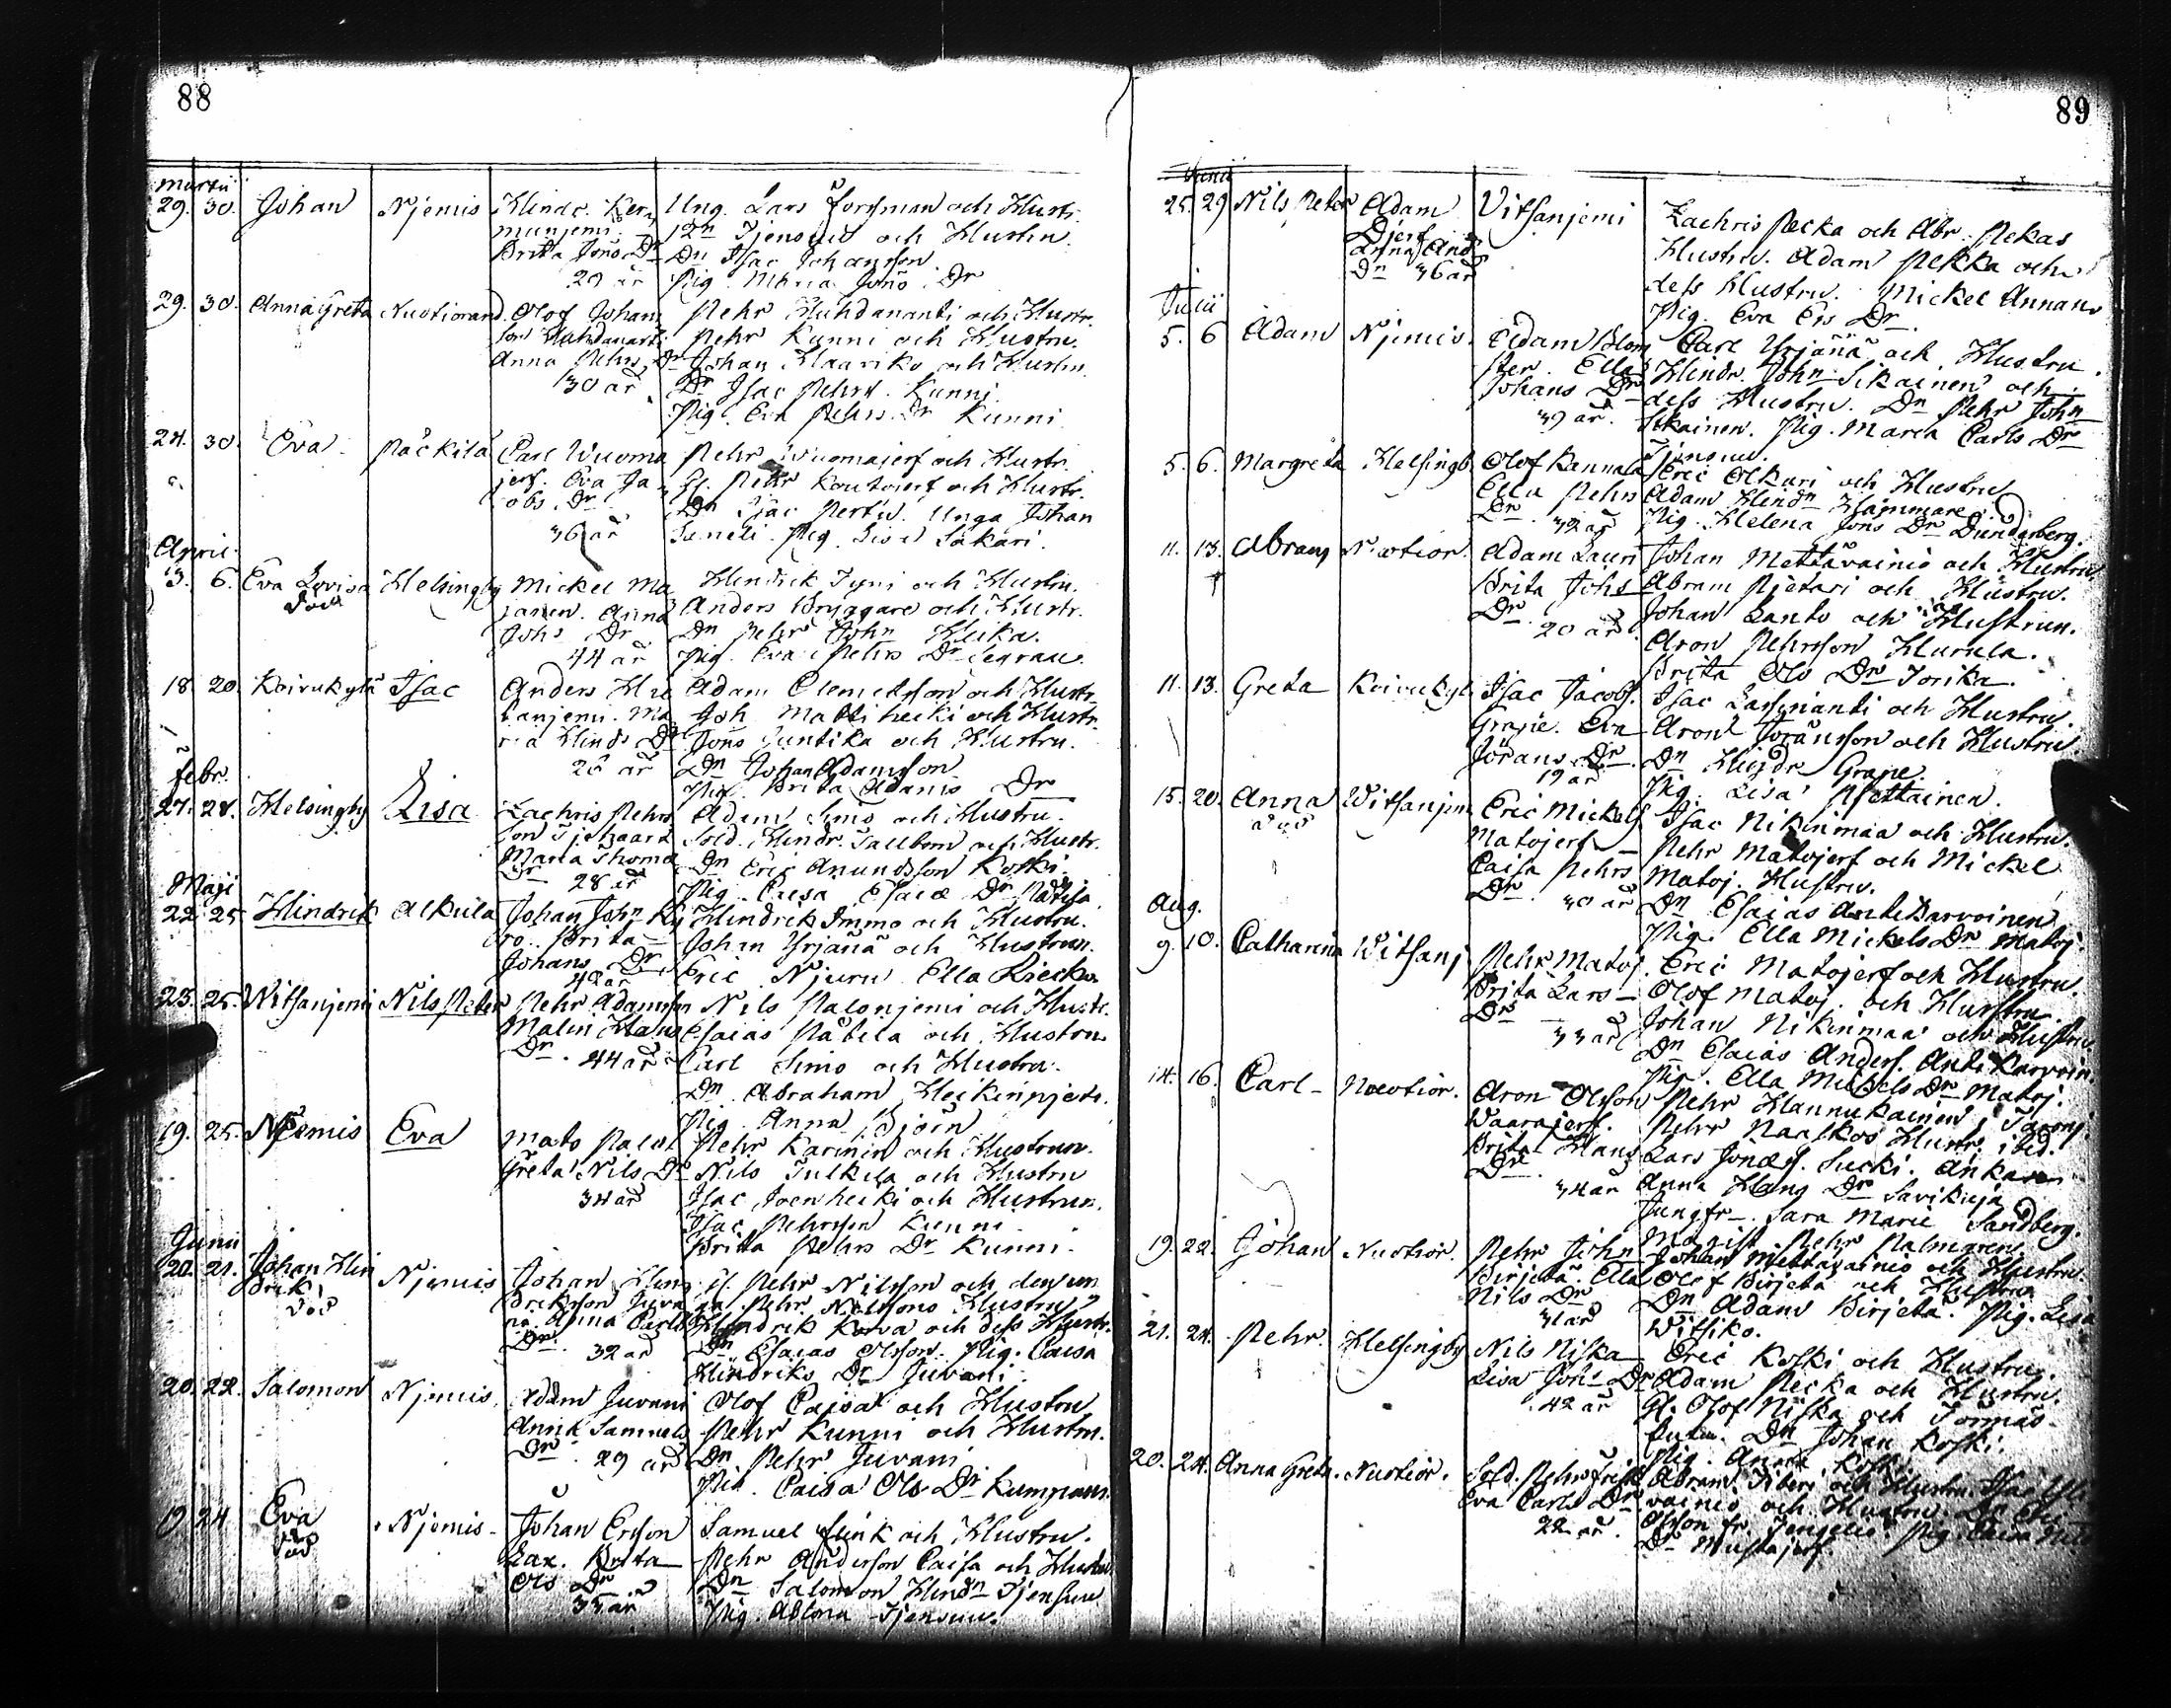 88
Martii
29. 30. Johan Njemis Hindr. Kera Ung. Lars Forssman och Hustr.
munjemi. Tjensuu och Hustru.
Brita Jöns Dr Dn Isac Johansson
29 år Pig. Maria Jöns Dr
29. 30. Anna Greta Nuotiorand. Olof Johans Pehr Huhdananti och Hustr.
son Huhdananti Pehr Kunni och Hustru.
Anna Pehrs Dr Johan Klaariko och Hustru.
30 år Dr Isac Pehrss. Kunni.
Pig. Eva Pehrs Dr Kunni.
24. 30. Eva Päckilä Carl Wuoma Pehr Wuomajerf och Hustr.
jerf. Eva Ja Gl. Pehr Koutojerf och Hustr.
cobs Dr Dn Isac Perttu. Unga Johan
36 år Saneli. Pig. Lisa Säkäri.
April
3. 6. Eva Lovisa Helsingby Mickel Ma Hindrik Tyni och Hustru.
död janen. Anna Anders Bryggare och Hustr.
Johs Dr Dn Pehr John Heika.
44 år Pig. Eva Pehrs Dr Segran.
18. 20. Koivukylä Isac Anders Hie Adam Clemetsson och Hustr.
tanjemi. Ma Joh. Mattiheiki och Hustr.
ria Hinds Dr Jöns Juntika och Hustru.
26 år Dn Johan Adamsson
Pig. Brita Adams Dr
Febr.
27. 28. Helsingby Lisa Zachris Pehrs Adam Simo och Hustru.
son Sold. Hindr. Tallbom och Hustr.
Maria Thoma Dn Eric Anundsson Koski.
Dr 28 år Pig. Caisa Esaiæ Dr
Maji
22 25 Hindrik Alkula Johan John Ky Hindrik Immo och Hustru.
rö. Brita Johan Yrjänä och Hustrun.
Johans Dr Eric Njuru Ella Riecko.
42 år
23. 25. Witsanjemi Nils Peter Pehr Adamsson Nils Palonjemi och Hustr.
Malin Hans Esaias Päkila och Hustru
Dr. 44 år Carl Simo och Hustru.
Dn Abraham Heikinpjeti.
Pig. Anna Björn
19. 25. Njemis Eva Mats Palol Pehr Karinen och Hustrun.
Greta Nils Dr Nils Tulkila och Hustru
34 år Isac Ivenheiki och Hustrun.
Isac Pehrsson Kunni.
Britta Pehrs Dr Kunni.
Junii
20. 21. Johan Hin Njemis Johan Hin Gl. Pehr Nilsson och den un
drik driksson Juva ga Pehr Nilssons Hustru
död ni. Anna Carls Hindrik Korva och dess Hustr.
Dr. 32 år Dn Esaias Olsson. Pig. Caisa
Hindriks Dr Juvani.
20. 22. Salomon Njemis. Adam Juvani Olof Caisa och Hustru
Annik Samuels Pehr Kunni och Hustru.
Dr 29 år Dn Pehr Juvani
Pig. Caisa Ols Dr Kumpani.
19 24 Eva Njemis Johan Ersson Samuel Flink och Hustru.
död Lax. Brita Pehr Andersson Caisa och Hustru
Ols Dr Dn Salomon Hindn Tjensuu
33 år Pig. Abluna Tjensuu.
89
Junii
25. 29 Nils Peter Adam Vitsanjemi Zachris Pecka och Abr. Pekas
Djerf Hustru. Adam Pekka och
Anna And dess Hustru. Mickel Annanu
Dn 36 år Pig. Eva Ers Dr
Julii
5. 6 Adam Njemis. Adam Blom Carl Yrjänä och Hustru.
ster. Ella Hindr. John Sikainen och
Johans Dr dess Hustru. Dn Pehr John
39 år. Sikainen. Pig. Maria Carls Dr
Tjensuu.
5. 6. Margreta Helsingb. Olof Kannala Eric Alkuri och Hustru
Ella Pehrs Adam Hindn Hammare
Dr 32 år Pig. Helena Jöns Dr Dunderberg.
11. 13. Abram Nuotior. Adam Lauri Johan Mettävainio och Hustru
Brita Johs Abram Pjetari och Hustru.
Dr 20 år Johan Lanto och Hustrun.
Aron Pehrsson Hurula.
Brita Ols Dr Jorika.
11. 13. Greta Koivukyl. Isac Jacobs. Isac Lassinanti och Hustru.
Grape. Eva Aron Joransson och Hustru
Jörans Dr Dn Hindr Grape.
19 år Pig. Lisa Mettainen.
15. 20. Anna Witsanjem Eric Mickels. Isac Nikinmaa och Hustru.
död Matojerf Pehr Matojerf och Mickel
Caisa Pehrs Matoj. Hustru.
Dr. 30 år Dn Esaias Antikarvoinen
Pig. Ella Mickels Dr Matoj.
Aug.
9. 10. Catharina Witsanj Pehr Matoj. Eric Matojerf och Hustru.
Brita Lars Olof Matoj. och Hustru.
Dr 33 år Johan Nikinmaa och Hustru.
Dn Esaias Anders. Antikarvoin.
Pig. Ella Mickels Dr Matoj.
14. 16. Carl Nuotior. Aron Olsson Pehr Hannukainen,
Waarajerf. Pehr Narkos Hustr. ibid.
Brita Hans Lars Jönss. Sucki. Änkan
Dr 34 år Anna Hans Dr Savikuja
Jungfr. Sara Marie Sandberg.
Magist. Pehr Palmgren.
19. 22. Johan Nuotior. Pehr John Johan Mettävainio och Hustru.
Pirjetä. Ella Olof Pirjetä och Hustru
Nils Dr Dn Adam Pirjetä. Pig. Lisa
31 år Witsiko.
21. 24. Pehr Helsingby Nils Niska Eric Koski och Hustru.
Lisa Johs Dr Adam Pecka och Hustru.
42 år Gl. Olof Niska och
Dn Johan Koski.
Pig. Anna Koski.
20. 24. Anna Greta. Nuotior. Sold. Pehr Frisk Abram och Hustru. Isac
Eva Carls Dr vainio och Hustru.
22 år. Olsson fr. Pig. Caisa Nils
Dr Mustajerf.